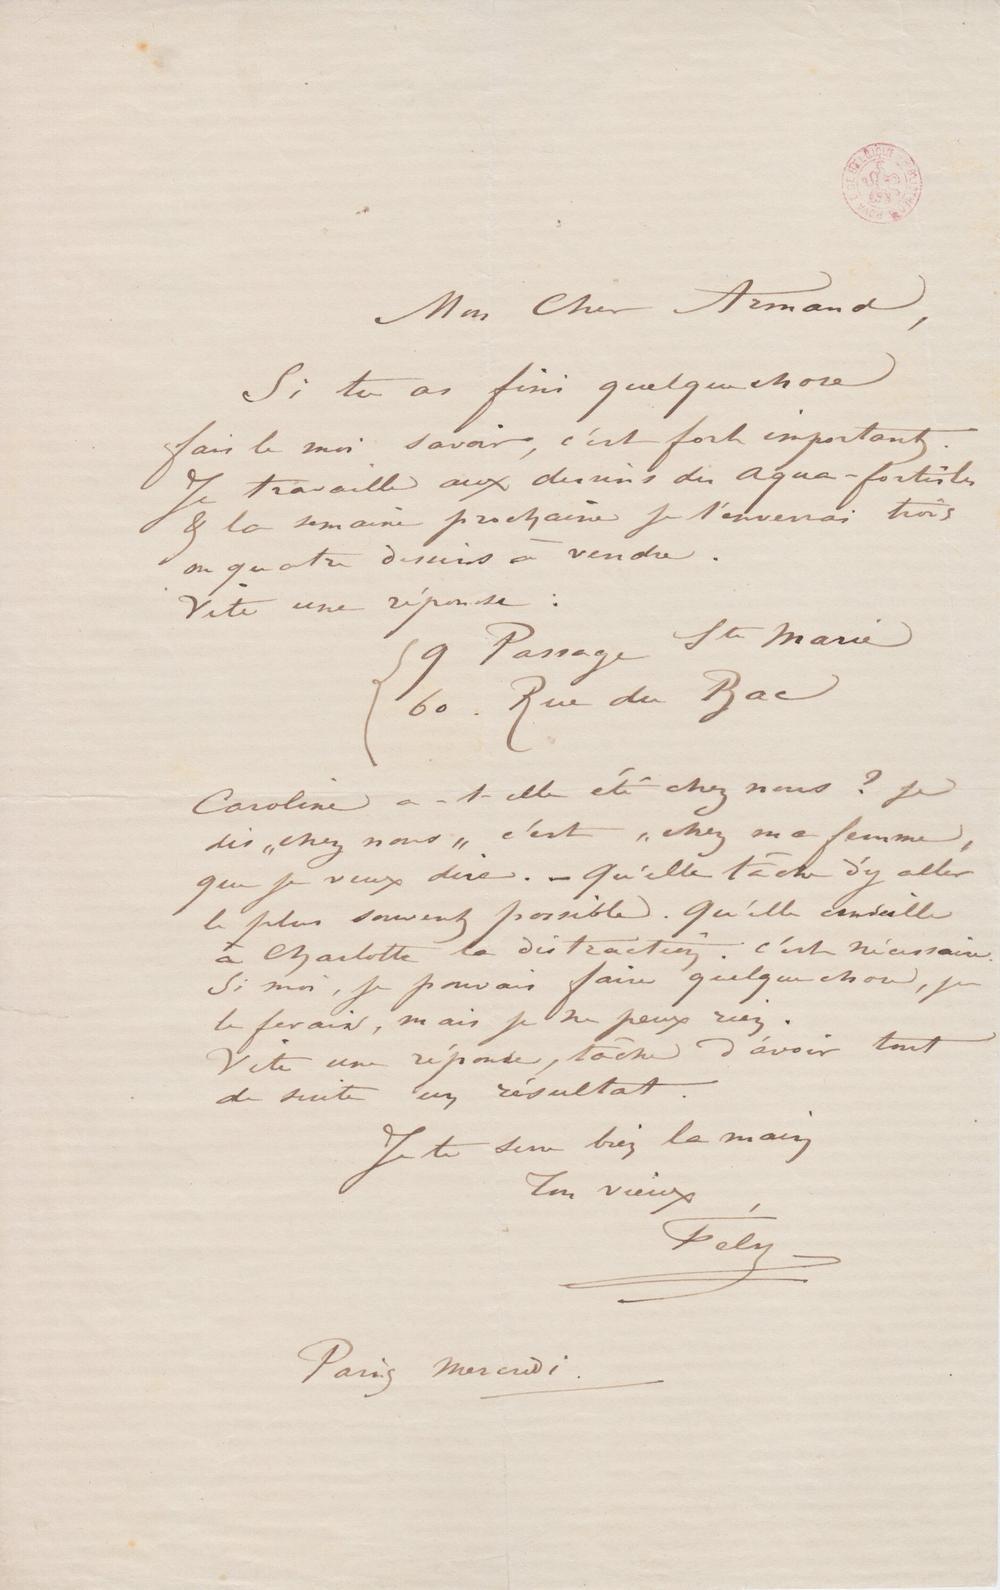 Mon Cher Armand,
Si tu as fini quelquechose
fais le moi savoir, c'est fort important.
Je travaille aux dessins des aqua-fortistes
& la semaine prochaine je t'enverrai trois
ou quatre dessins à vendre.
Vite une réponse :
9 Passage Ste Marie
60. Rue du Bac
Caroline a-t-elle été chez nous ? je
dis „chez nous„ c'est „chez ma femme,
que je veux dire. — Qu'elle tâche d'y aller
le plus souvent possible. Qu'elle conseille
à Charlotte la distraction. c'est nécessaire.
Si moi, je pouvais faire quelquechose, je
le ferais, mais je ne peux rien.
Vite une réponse, tâche d'avoir tout
de suite un résultat.
Je te serre bien la main
Ton vieux,
Fely
Paris mercredi.